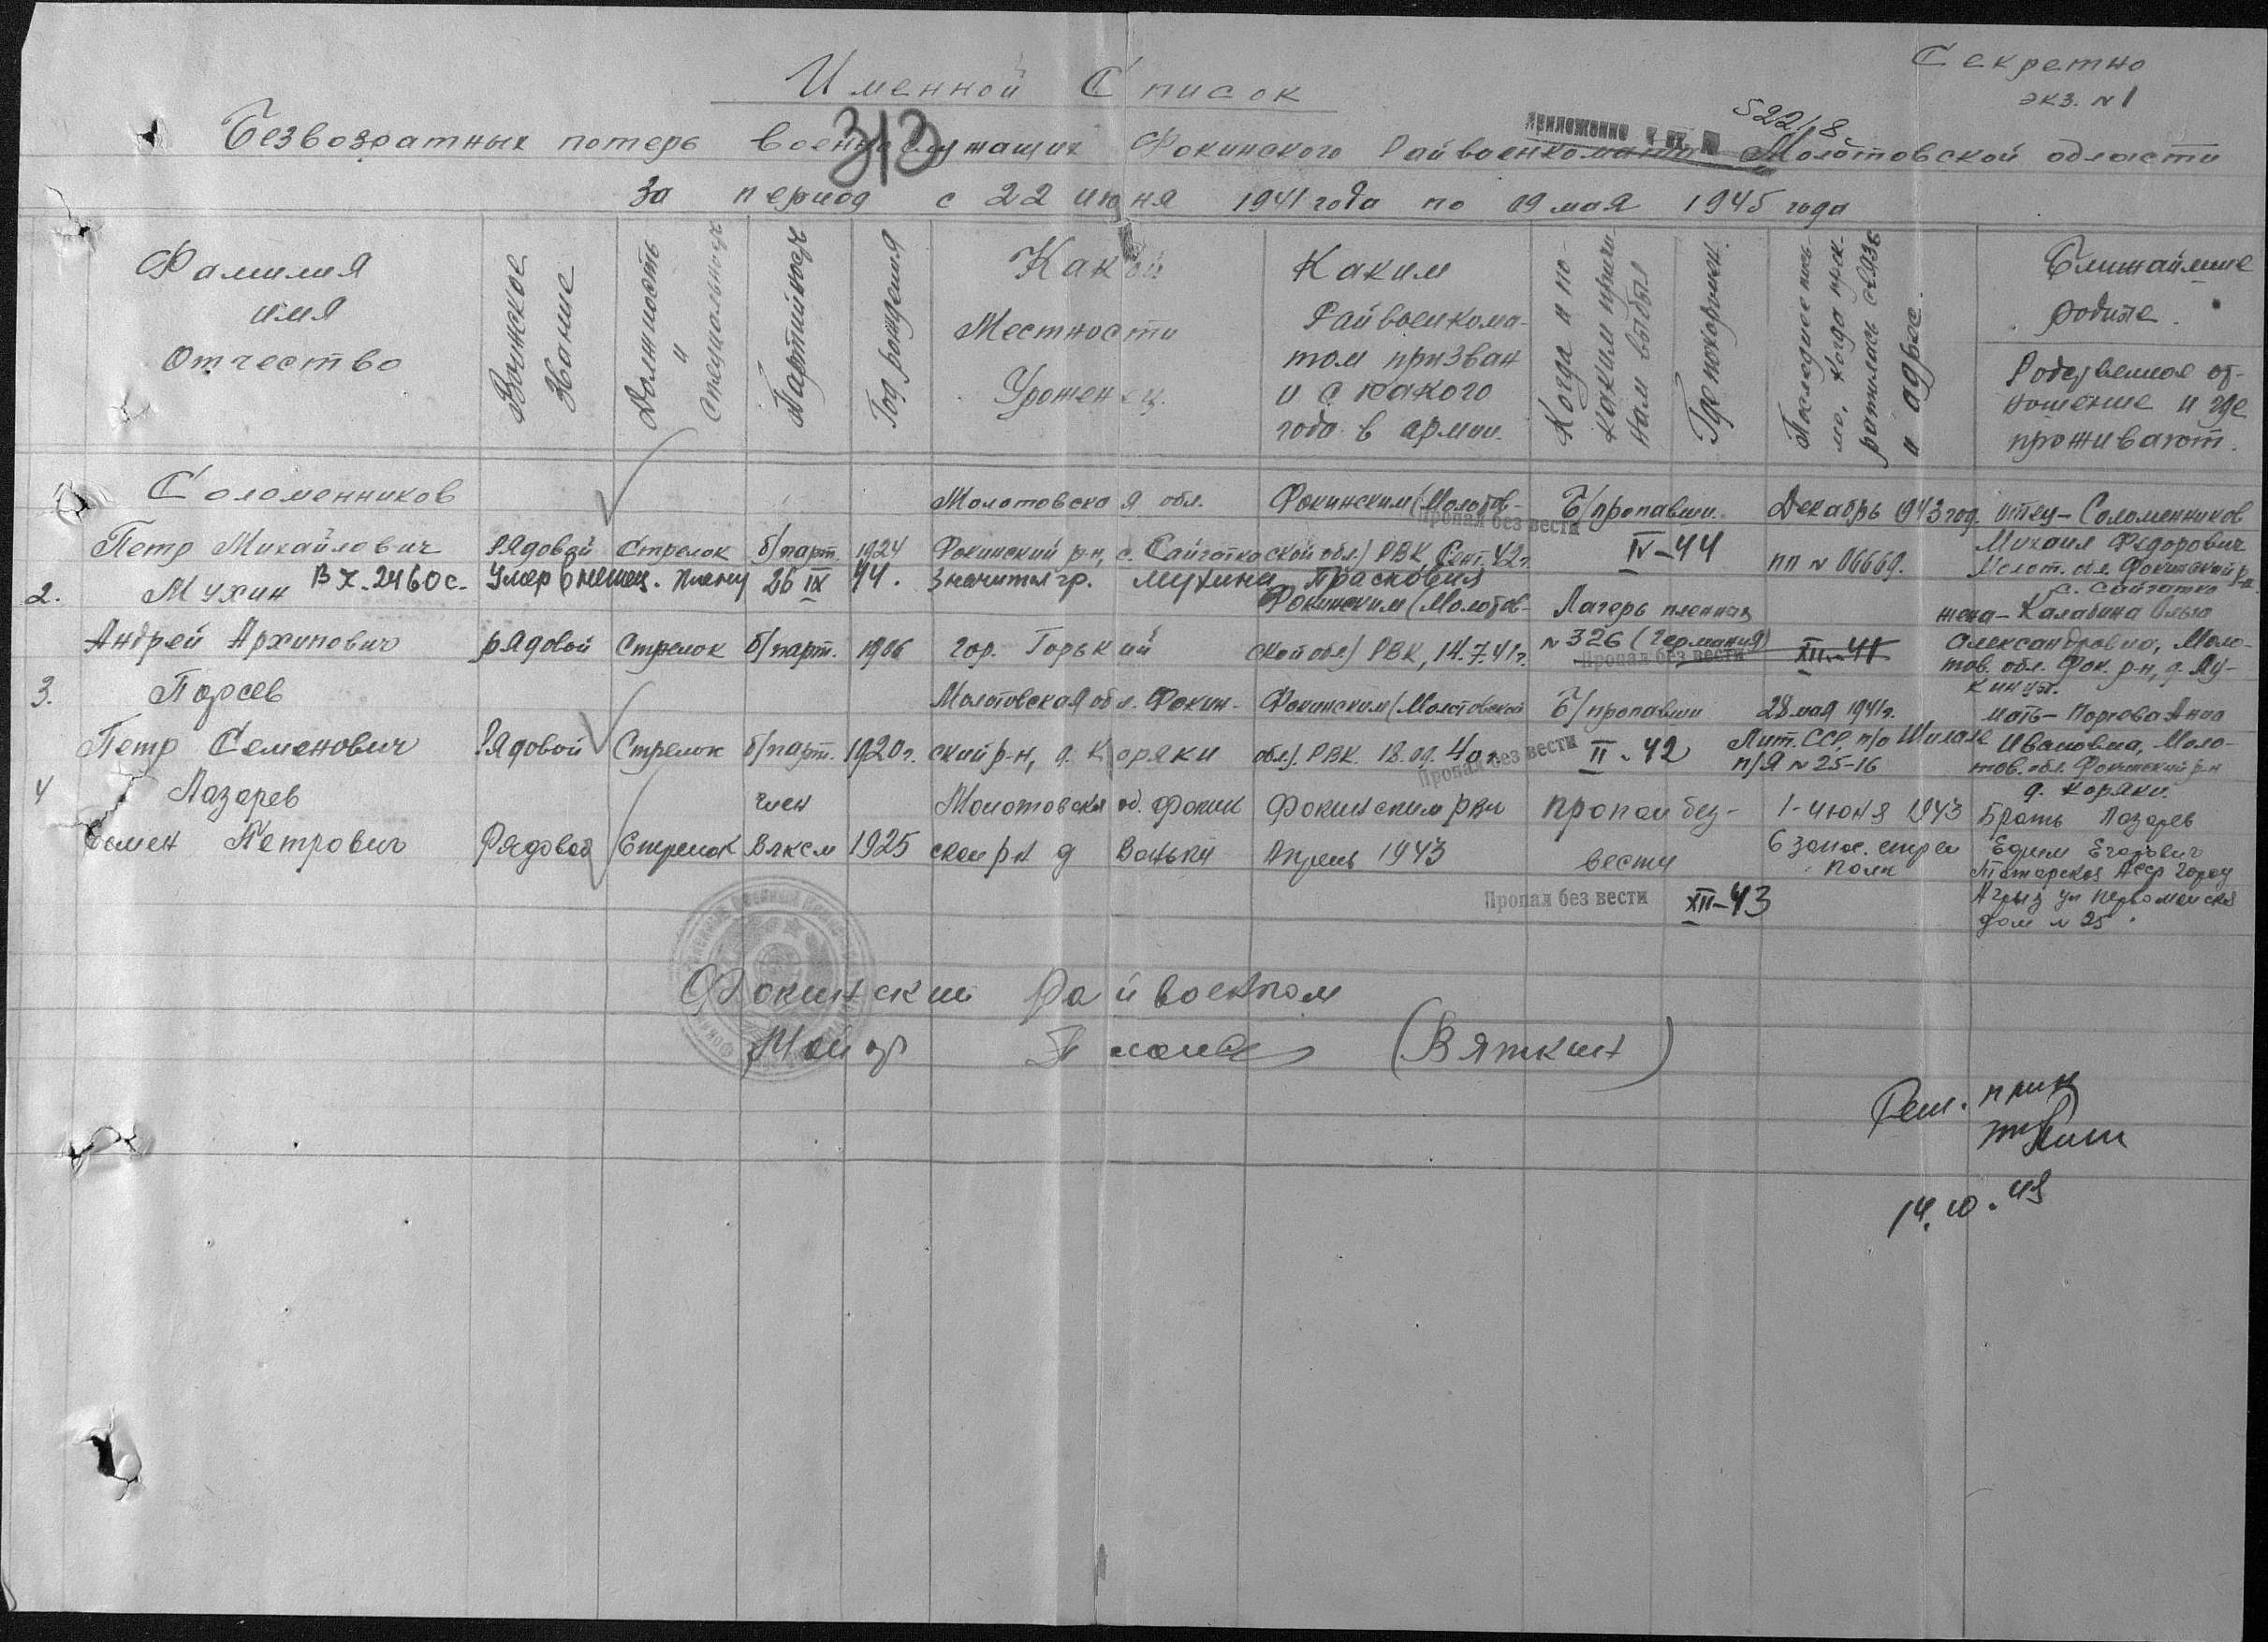 Секретно
экз. N 1
Именной Список
313
Приложение к вх. N 522/8
Безвозвратных потерь военнослужащих Фокинского Райвоенкомата Молотовской области
за период с 22 июня 1941 года по 09 мая 1945 года
Фамилия имя Отчество
Воинское Звание
Должность и специальность
Партийность
Год рождения
Какой Местности Уроженец.
Каким Райвоенкоматом призван и с какого года в армии.
Когда и по каким причинам выбыл
Где похоронен.
Последнее письмо, когда прекратилась связь и адрес.
Ближайшие родите.
Родственное отношение и где проживают.
Соломенников Молотовская обл. Фокинским (Молотов- Б/пропавши. Декабрь 1943 год. отец - Соломенников
Пропал без вести
Петр Михайлович Рядовой Стрелок б/парт. 1924 Фокинский р-н, с. Сайгатка ской обл.) РВК, Сент. 42 г. IV-44 пп N 06669. Михаил Федорович
Молот. обл. Фокинский р-н
с. Сайгатка
Вх. 2460с. Умер в немец. плену 26 IX 44. Значится гр. Мухина Прасковия
2. Мухин Фокинским (Молотов- Лагерь пленных жена - Калабина Ольга
Андрей Архипович рядовой Стрелок б/парт. 1906 гор. Горький ской обл.) РВК, 14.7.41 г. N 326 (Германия) XII-41 Александровна, Моло-
Пропал без вести
тов. обл. Фок. р-н, д. Лу-
кинцы.
3. Порсев Молотовская обл. Фокин- Фокинским (Молотовской Б/пропавши 28 мая 1941 г. мать - Порсева Анна
Петр Семенович Рядовой Стрелок б/парт. 1920 г. ский р-н, д. Коряки обл.). РВК. 18.09.40 г. II-42 Лит. ССР, п/о Шилале Ивановна, Моло-
Пропал без вести
п/я N 25-16 тов. обл. Фокинский р-н
д. Коряки.
4 Лазарев член Молотовска об. Фокин Фокинским рвк пропал без- 1-июня 1943 Брать Лазарев
Семен Петрович Рядовой Стрелок ВЛКСМ 1925 ской рн д Ваньки Апрель 1943 вести 6 запас. стрел полк
Егорович
Татарская АССР город
Пропал без вести XII-43
Агрыз ул Первомайска
дом N 25
Фокинский Райвоенком
Майор (Вяткин)
14.10.48